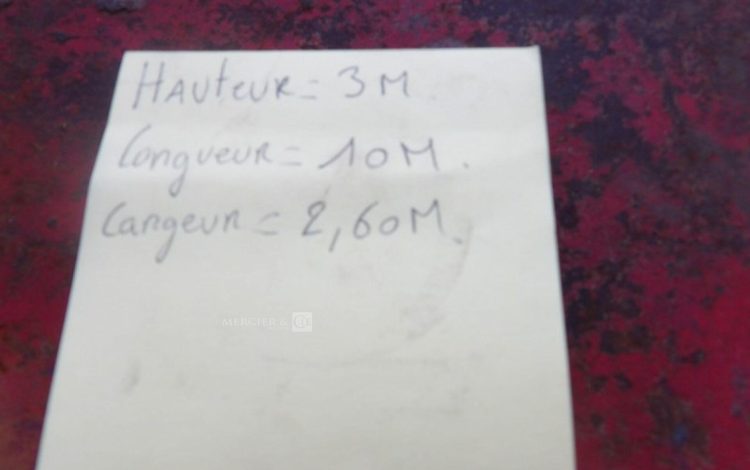 HAUTEUR = 3 M
Longueur = 10 M.
Largeur = 2,60 M.
MERCIER & CO